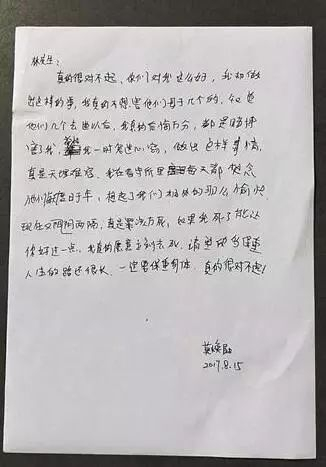 林先生：
真的很对不起，你们对我这么好，我却做
出这样的事，我真的不想害他们母子几个的，知道
他们几个去世以后，我真的后悔万分，都是赌博
害了我，我一时鬼迷心窍，做出这样事情，
真是天理难容，我在看守所里每天都
他们，度日如年，想起了我们相处的那么愉快，
现在又阴阳两隔，真是罪该万死，如果我死了能让
你好过一点，我真的愿意立刻去死，请
人生的路还很长，一定要保重身体，真的很对不起！
莫焕晶
2017.8.15